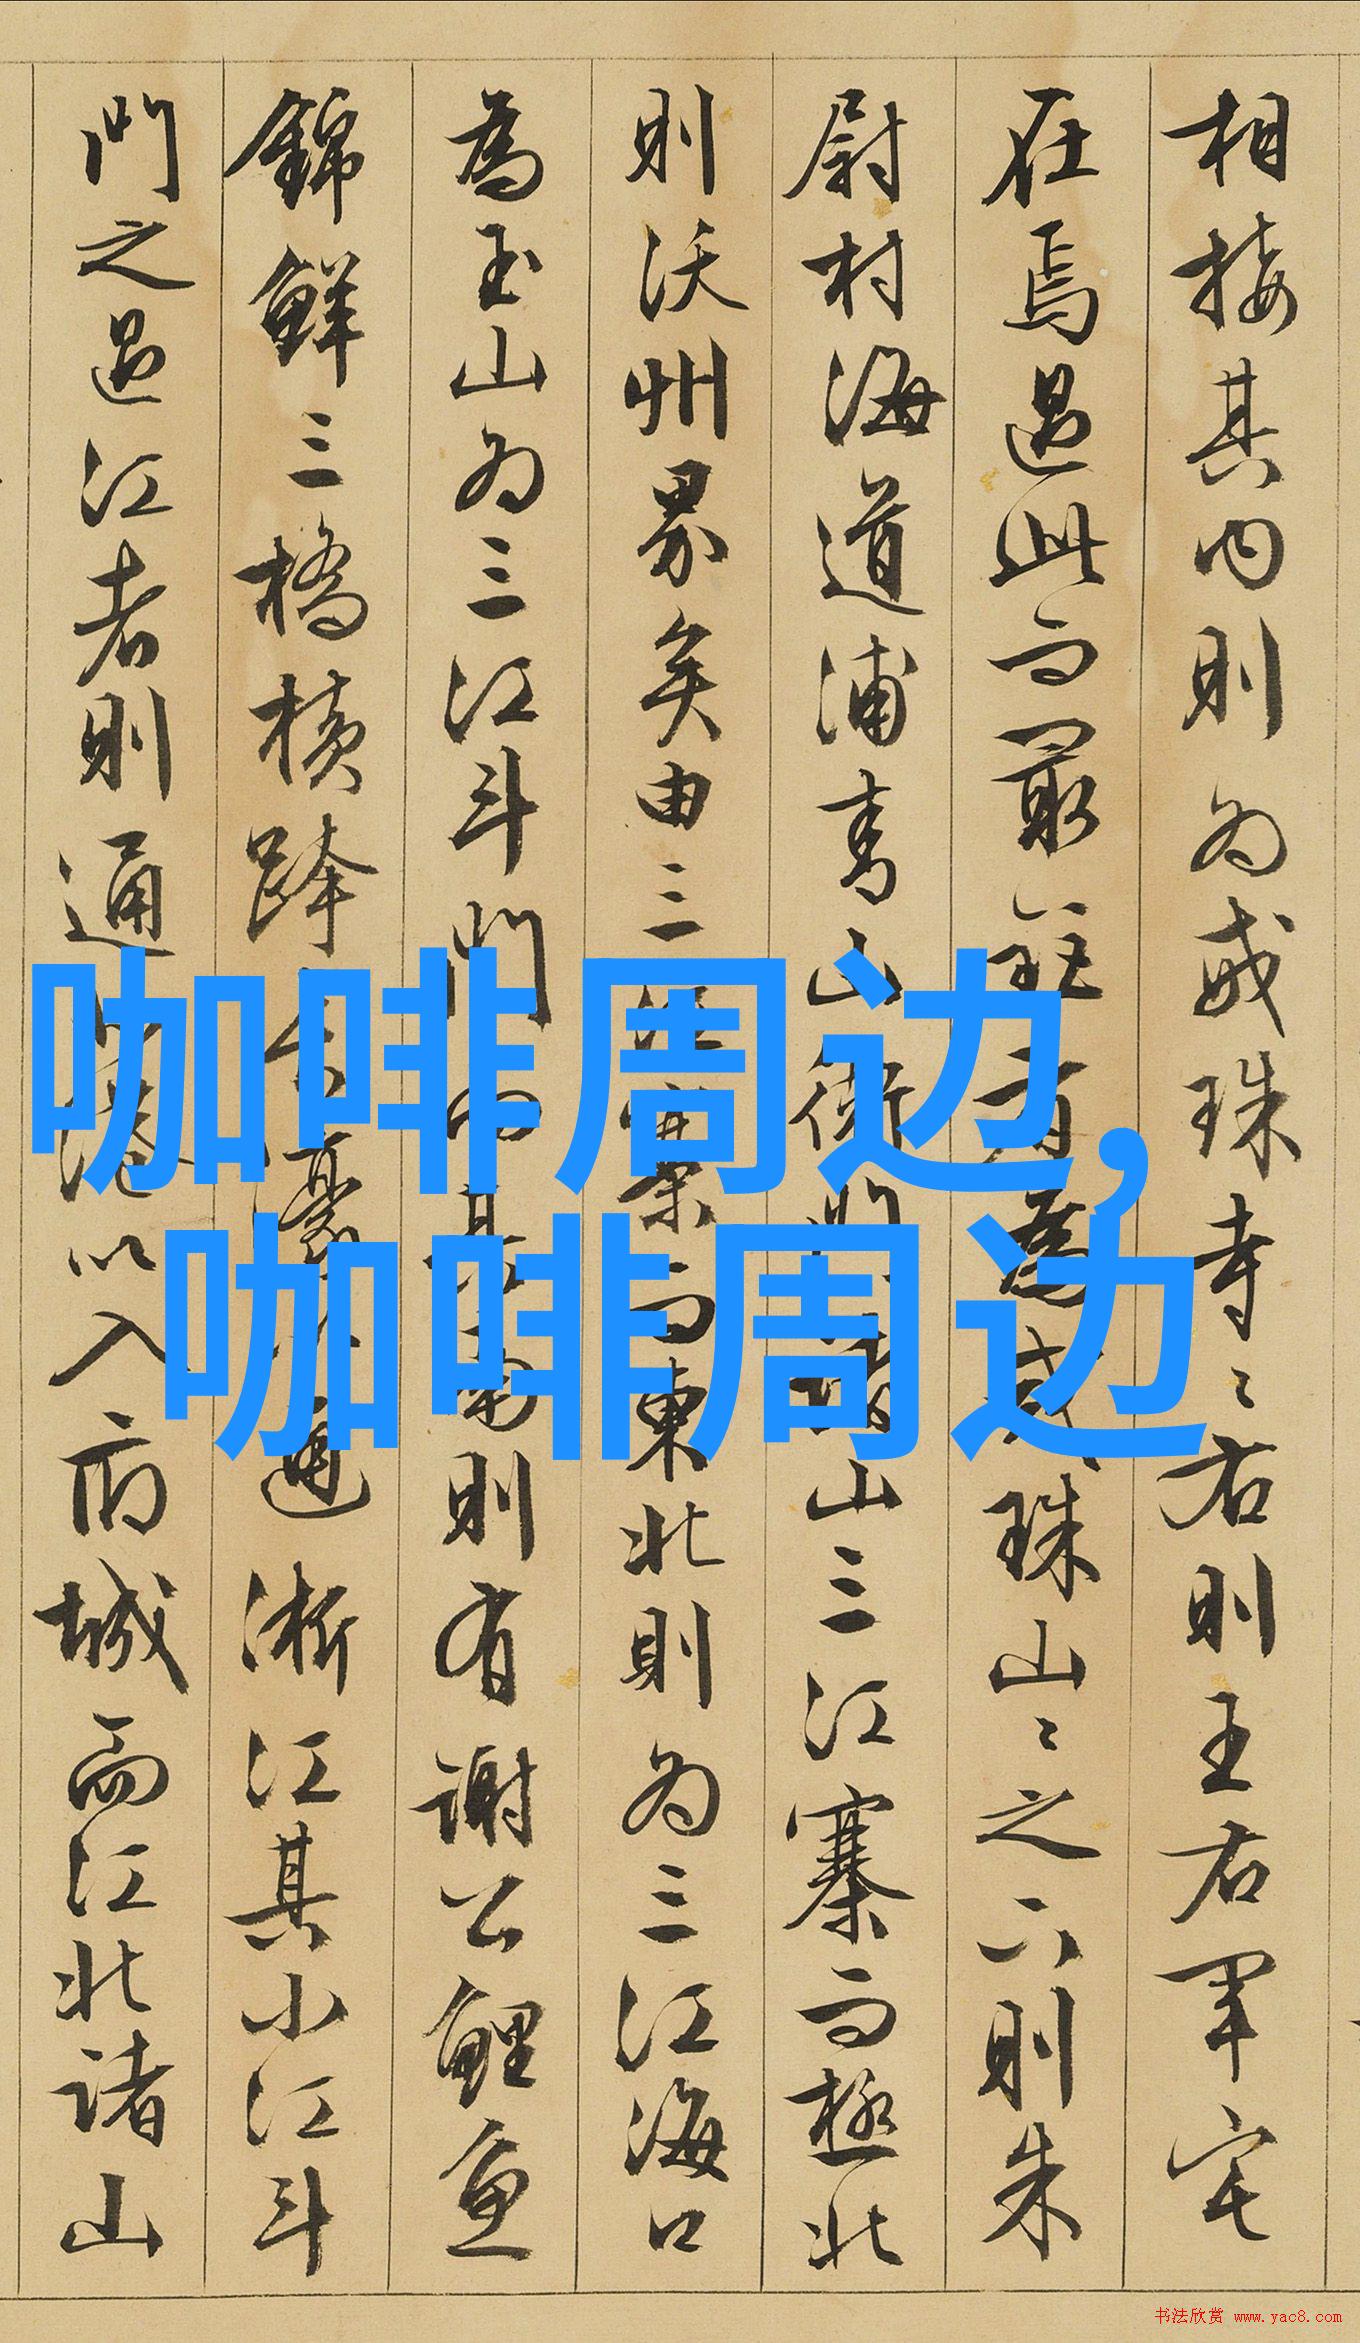 相接其內則為戒珠寺々右則王右軍宅
在焉過此而最六則朱
尉村海道浦青山三江寨而極北
則沃州界矣由三東北則為三江海口
為玉山為三江斗門則有謝公鯉魚
錦鮮三橋橫跨通浙江其小江斗
門之過江者則通以入府城而江北諸山
咖啡周边,
咖啡周边
书法欣赏 www.yac8.com